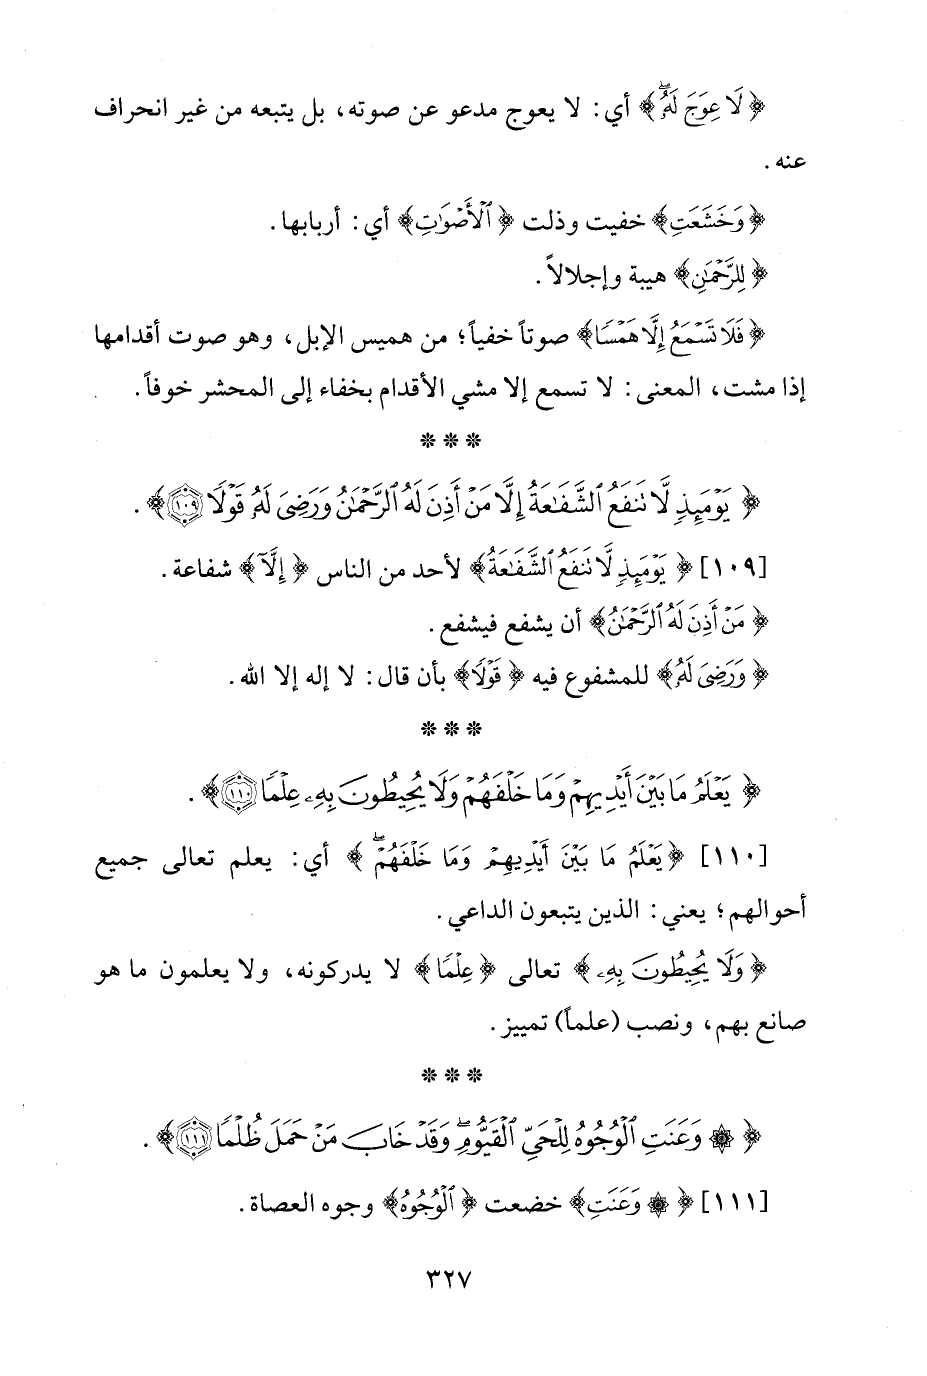 ﴿لَا عِوَجَ لَهُۥۖ﴾ أي: لا يعوج مدعو عن صوته، بل يتبعه من غير انحراف
عنه.
﴿وَخَشَعَتِ﴾ خفيت وذلت ﴿ٱلْأَصْوَاتُ﴾ أي: أربابها.
﴿لِلرَّحْمَٰنِ﴾ هيبة وإجلالاً.
﴿فَلَا تَسْمَعُ إِلَّا هَمْسًا﴾ صوتاً خفياً؛ من هميس الإبل، وهو صوت أقدامها
إذا مشت، المعنى: لا تسمع إلا مشي الأقدام بخفاء إلى المحشر خوفاً.
***
﴿يَوْمَئِذٍ لَّا تَنفَعُ ٱلشَّفَٰعَةُ إِلَّا مَنْ أَذِنَ لَهُ ٱلرَّحْمَٰنُ وَرَضِيَ لَهُۥ قَوْلًا ١٠٩﴾.
[١٠٩] ﴿يَوْمَئِذٍ لَّا تَنفَعُ ٱلشَّفَٰعَةُ﴾ لأحد من الناس ﴿إِلَّا﴾ شفاعة.
﴿مَنْ أَذِنَ لَهُ ٱلرَّحْمَٰنُ﴾ أن يشفع فيشفع.
﴿وَرَضِيَ لَهُۥ﴾ للمشفوع فيه ﴿قَوْلًا﴾ بأن قال: لا إله إلا الله.
***
﴿يَعْلَمُ مَا بَيْنَ أَيْدِيهِمْ وَمَا خَلْفَهُمْ وَلَا يُحِيطُونَ بِهِۦ عِلْمًا ١١٠﴾.
[١١٠] ﴿يَعْلَمُ مَا بَيْنَ أَيْدِيهِمْ وَمَا خَلْفَهُمْۖ﴾ أي: يعلم تعالى جميع
أحوالهم؛ يعني: الذين يتبعون الداعي.
﴿وَلَا يُحِيطُونَ بِهِۦ﴾ تعالى ﴿عِلْمًا﴾ لا يدركونه، ولا يعلمون ما هو
صانع بهم، ونصب (علماً) تمييز.
***
﴿۞ وَعَنَتِ ٱلْوُجُوهُ لِلْحَيِّ ٱلْقَيُّومِۖ وَقَدْ خَابَ مَنْ حَمَلَ ظُلْمًا ١١١﴾.
[١١١] ﴿۞ وَعَنَتِ﴾ خضعت ﴿ٱلْوُجُوهُ﴾ وجوه العصاة.
٣٢٧